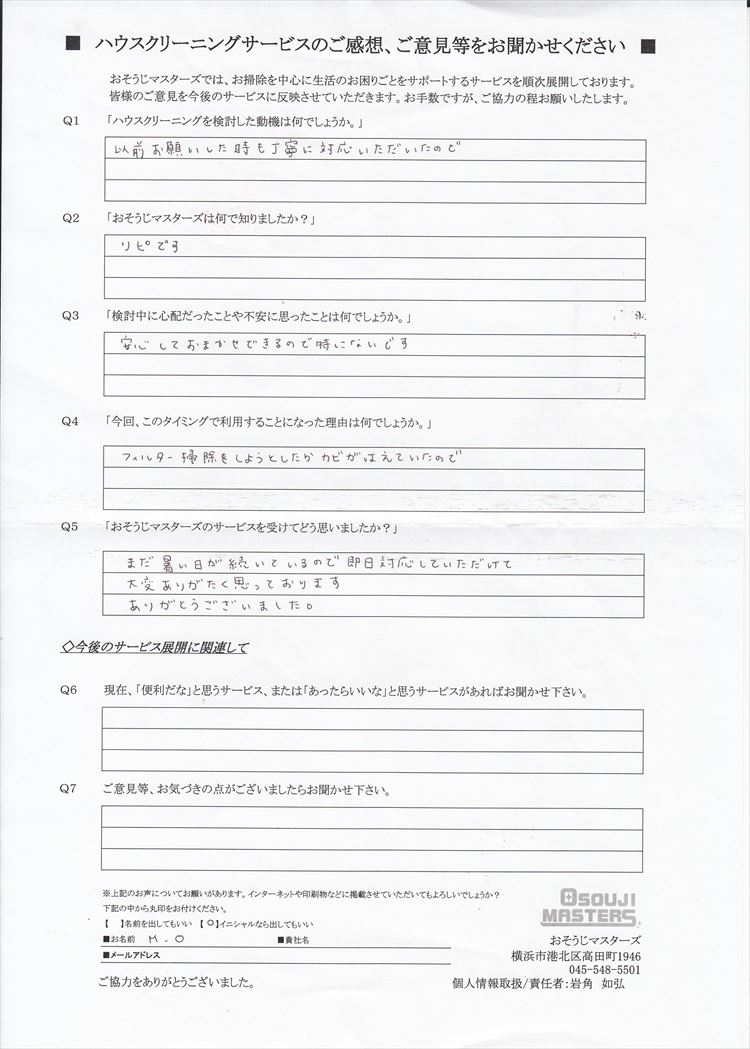 ■ ハウスクリーニングサービスのご感想、ご意見等をお聞かせください ■
おそうじマスターズでは、お掃除を中心に生活のお困りごとをサポートするサービスを順次展開しております。
皆様のご意見を今後のサービスに反映させていただきます。お手数ですが、ご協力の程お願いしたします。
Q1 「ハウスクリーニングを検討した動機は何でしょうか。」
以前お願いした時も丁寧に対応いただいたので
Q2 「おそうじマスターズは何で知りましたか？」
リピです
Q3 「検討中に心配だったことや不安に思ったことは何でしょうか。」
安心しておまかせできるので特にないです
Q4 「今回、このタイミングで利用することになった理由は何でしょうか。」
フィルター掃除をしようとしたがカビがはえていたので
Q5 「おそうじマスターズのサービスを受けてどう思いましたか？」
まだ暑い日が続いているので即日対応していただけて
大変ありがたく思っております
ありがとうございました。
◇今後のサービス展開に関連して
Q6 現在、「便利だな」と思うサービス、または「あったらいいな」と思うサービスがあればお聞かせ下さい。
Q7 ご意見等、お気づきの点がございましたらお聞かせ下さい。
※上記のお声についてお願いがあります。インターネットや印刷物などに掲載させていただいてもよろしいでしょうか？
下記の中から丸印をお付けください。
【 】名前を出してもいい 【O】イニシャルなら出してもいい
■お名前 M.O ■貴社名
■メールアドレス
ご協力をありがとうございました。
OSOUJI
MASTERS
おそうじマスターズ
横浜市港北区高田町1946
045-548-5501
個人情報取扱/責任者:岩角 如弘